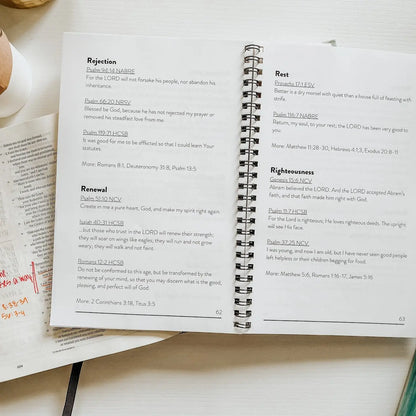 Rejection
Psalm 94:14 NABRE
For the LORD will not forsake his people, nor abandon his
inheritance.
Psalm 66:20 NRSV
Blessed be God, because he has not rejected my prayer or
removed his steadfast love from me.
Psalm 119:71 HCSB
It was good for me to be afflicted so that I could learn Your
statutes.
More: Romans 8:1, Deuteronomy 31:8, Psalm 13:5
Renewal
Psalm 51:10 NCV
Create in me a pure heart, God, and make my spirit right again.
Isaiah 40:31 HCSB
... but those who trust in the LORD will renew their strength;
they will soar on wings like eagles; they will run and not grow
weary; they will walk and not faint.
Romans 12:2 HCSB
Do not be conformed to this age, but be transformed by the
renewing of your mind, so that you may discern what is the good,
pleasing, and perfect will of God.
More: 2 Corinthians 3:18, Titus 3:5
62
Rest
Proverbs 17:1 ESV
Better is a dry morsel with quiet than a house full of feasting with
strife.
Psalm 116:7 NABRE
Return, my soul, to your rest; the LORD has been very good to
you.
More: Matthew 11:28-30, Hebrews 4:1,3, Exodus 20:8-11
Righteousness
Genesis 15:6 NCV
Abram believed the LORD. And the LORD accepted Abram's
faith, and that faith made him right with God.
Psalm 11:7 HCSB
For the Lord is righteous; He loves righteous deeds. The upright
will see His face.
Psalm 37:25 NCV
I was young, and now I am old, but I have never seen good people
left helpless or their children begging for food.
More: Matthew 5:6, Romans 1:16-17, James 5:16
63